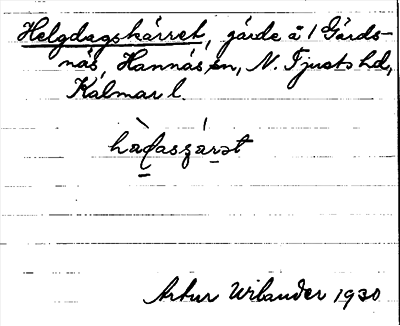 Helgdagskärret, gärde å 1 Gärds-
näs, Hannäs sn, N. Tjusts hd,
Kalmar l.
hàdaszárət
Artur Wilander 1930